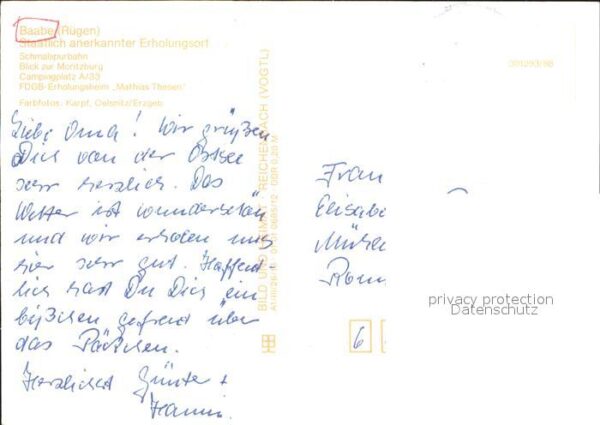 Baabe (Rügen)
Staatlich anerkannter Erholungsort
Schmalspurbahn
Blick zur Moritzburg
Campingplatz A/33
FDGB-Erholungsheim „Mathias Thesen“
Farbfotos: Karpf, Oelsnitz/Erzgeb
Liebe Oma! Wir grüßen
Dich von der Ostsee
sehr herzlich. Das
Wetter ist wunderschön
und wir erholen uns
hier sehr gut. Hoffent
lich hast Du Dich ein
bißchen gefreut über
das Päckchen.
Herzlichst Günter +
Hanni.
BILD UND HEIMAT REICHENBACH (VOGTL)
Frau
Elisabe
6
privacy protection
Datenschutz